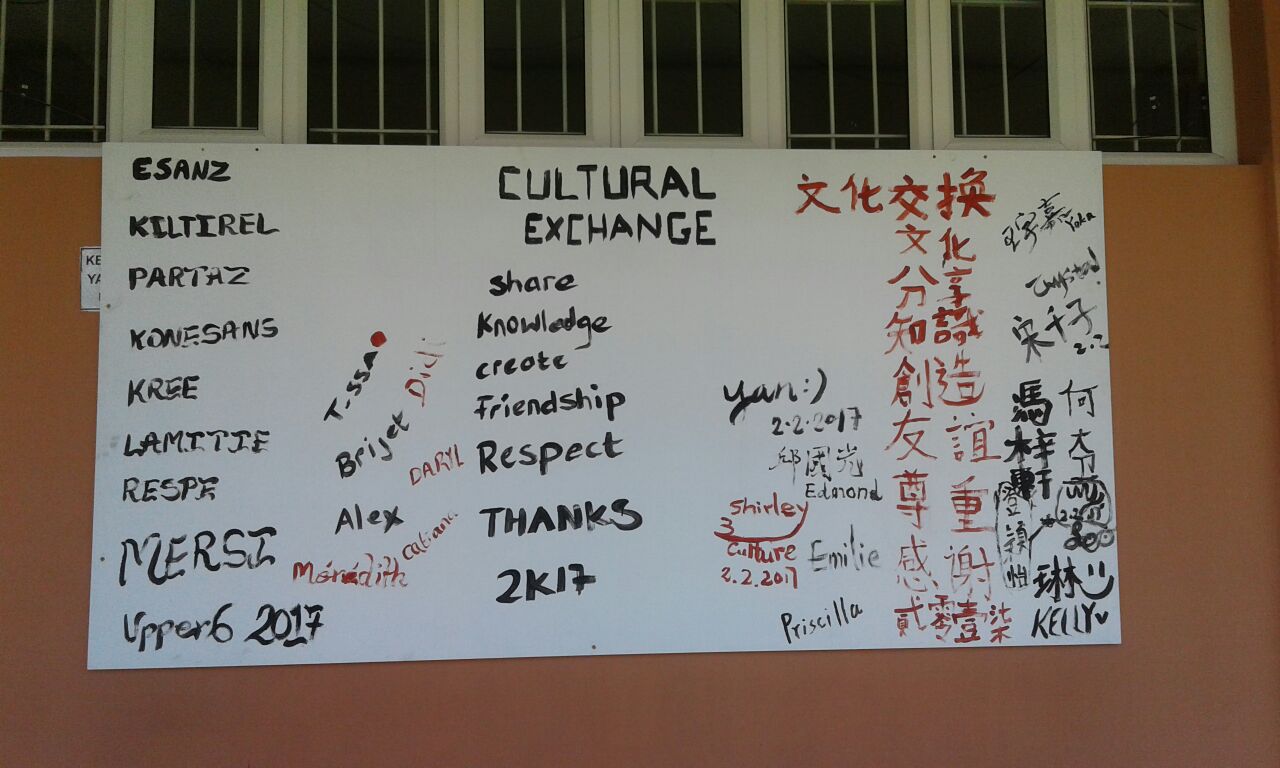 ESANZ
KILTIREL
PARTAZ
KONESANS
KREE
LAMITIE
RESPE
MERSI
Upper6 2017
T-ssa
Brijet
DARYL
Alex
Mérédith
CULTURAL
EXCHANGE
share
Knowledge
create
Friendship
Respect
THANKS
2K17
yan:)
2.2.2017
邱國光
Edmond
Shirley
3
culture
2.2.2017
Emilie
Priscilla
文化交換
文化
分享
知識
創造
友誼
尊重
感謝
貳零壹柒
王宇嘉
Crystal
宋千子
2.2
馬梓軒
何
琳
KELLY
KE
YA